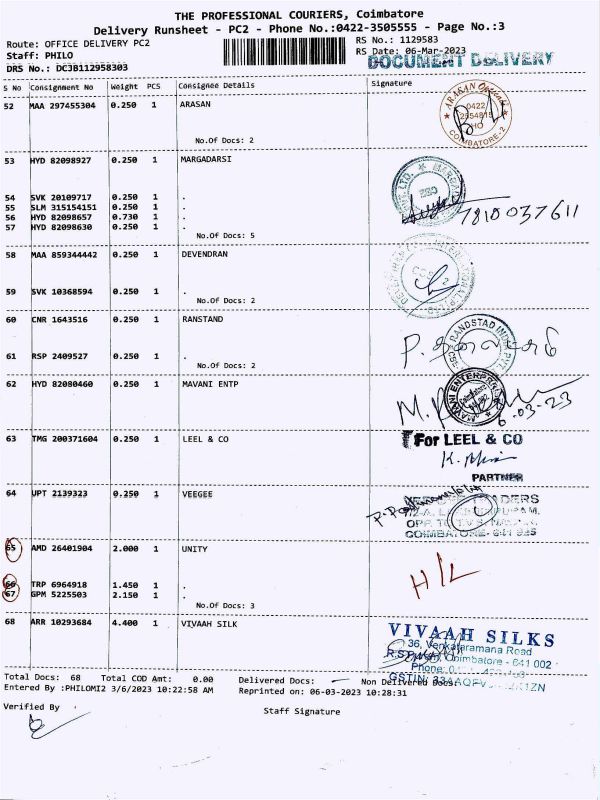 THE PROFESSIONAL COURIERS, Coimbatore
Delivery Runsheet - PC2 - Phone No.:0422-3505555 - Page No.:3
Route: OFFICE DELIVERY PC2
RS No.: 1129583
Staff: PHILO
RS Date: 06-Mar-2023
DRS No.: DCJB112958303
DOCUMENT DELIVERY
S No Consignment No Weight PCS Consignee Details Signature
52 MAA 297455304 0.250 1 ARASAN
ARASAN
0422
HO
COIMBATORE-2
No.Of Docs: 2
53 HYD 82098927 0.250 1 MARGADARSI
54 SVK 20109717 0.250 1 .
55 SLM 315154151 0.250 1 .
56 HYD 82098657 0.730 1 .
57 HYD 82098630 0.250 1 .
7810037611
No.Of Docs: 5
58 MAA 859344442 0.250 1 DEVENDRAN
59 SVK 10368594 0.250 1 .
No.Of Docs: 2
60 CNR 1643516 0.250 1 RANSTAND
RANDSTAD
61 RSP 2409527 0.250 1 .
No.Of Docs: 2
62 HYD 82080460 0.250 1 MAVANI ENTP
MAVANI ENTERPRISES
6-03-23
63 TMG 200371604 0.250 1 LEEL & CO
For LEEL & CO
PARTNER
64 UPT 2139323 0.250 1 VEEGEE
COIMBATORE - 641 025
65 AMD 26401904 2.000 1 UNITY
H/L
66 TRP 6964918 1.450 1 .
67 GPM 5225503 2.150 1 .
No.Of Docs: 3
68 ARR 10293684 4.400 1 VIVAAH SILK
VIVAAH SILKS
36, Venkataramana Road
R.S.Puram, Coimbatore - 641 002
Phone:
GSTIN:
Total Docs: 68 Total COD Amt: 0.00 Delivered Docs: Non Delivered Docs:
Entered By :PHILOMI2 3/6/2023 10:22:58 AM Reprinted on: 06-03-2023 10:28:31
Verified By
Staff Signature